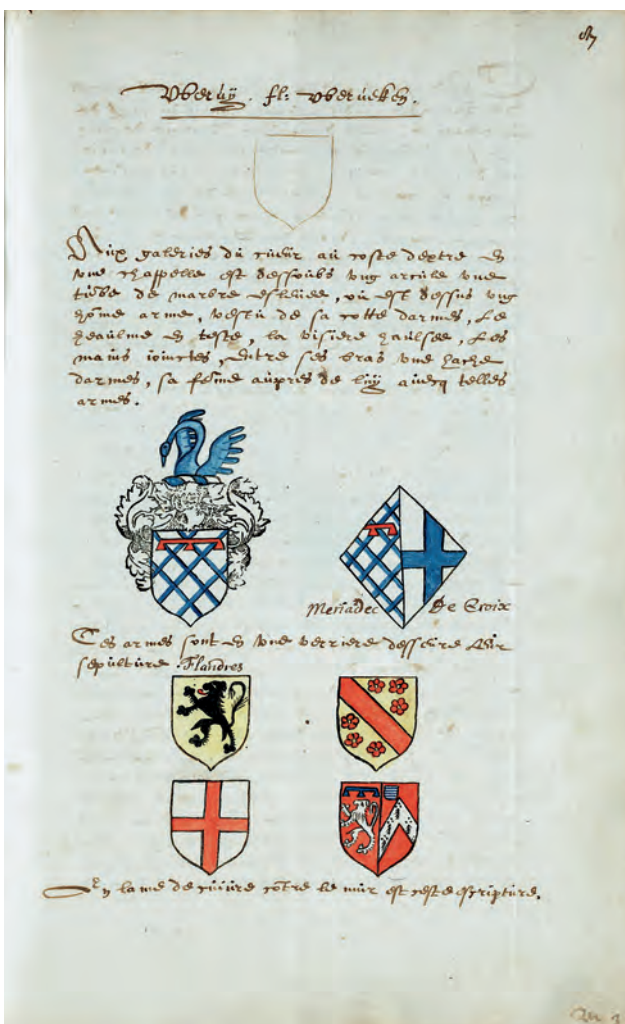 Aux galeries du cueur au coste dextre en
une chappelle est dessoubs ung arcure une
tũbe de marbre eslevée, où est dessus ung
hõme armé, vestu de sa cotte darmes, le
heaulme en teste, la visiere haulsee, les
mains ioinctes, entre ses bras une hache
darmes, sa feme aupres de luy avecq telles
armes.
Meriadec De Croix
Ces armes sont en une verriere desseure leur
sepulture. Flandres
En lame de cuivre cõtre le mur est ceste escripture.